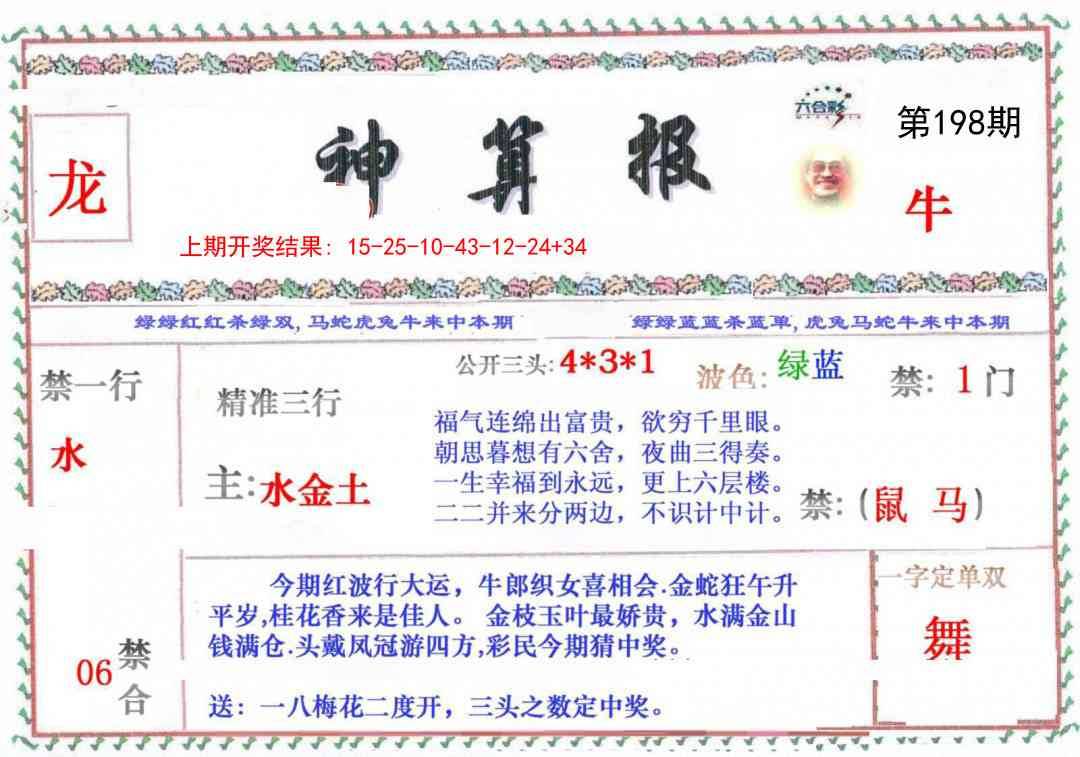 六合彩
第198期
龙
神算报
牛
上期开奖结果：15-25-10-43-12-24+34
绿绿红红杀绿双,马蛇虎兔牛来中本期
绿绿蓝蓝杀蓝单,虎兔马蛇牛来中本期
禁一行
水
精准三行
主:水金土
公开三头:4*3*1
波色:绿蓝
禁:1门
福气连绵出富贵，欲穷千里眼。
朝思暮想有六舍，夜曲三得奏。
一生幸福到永远，更上六层楼。
二二并来分两边，不识计中计。
禁:(鼠 马)
今期红波行大运，牛郎织女喜相会.金蛇狂午升
平岁,桂花香来是佳人。金枝玉叶最娇贵，水满金山
钱满仓.头戴凤冠游四方,彩民今期猜中奖。
送：一八梅花二度开，三头之数定中奖。
06
禁合
一字定单双
舞